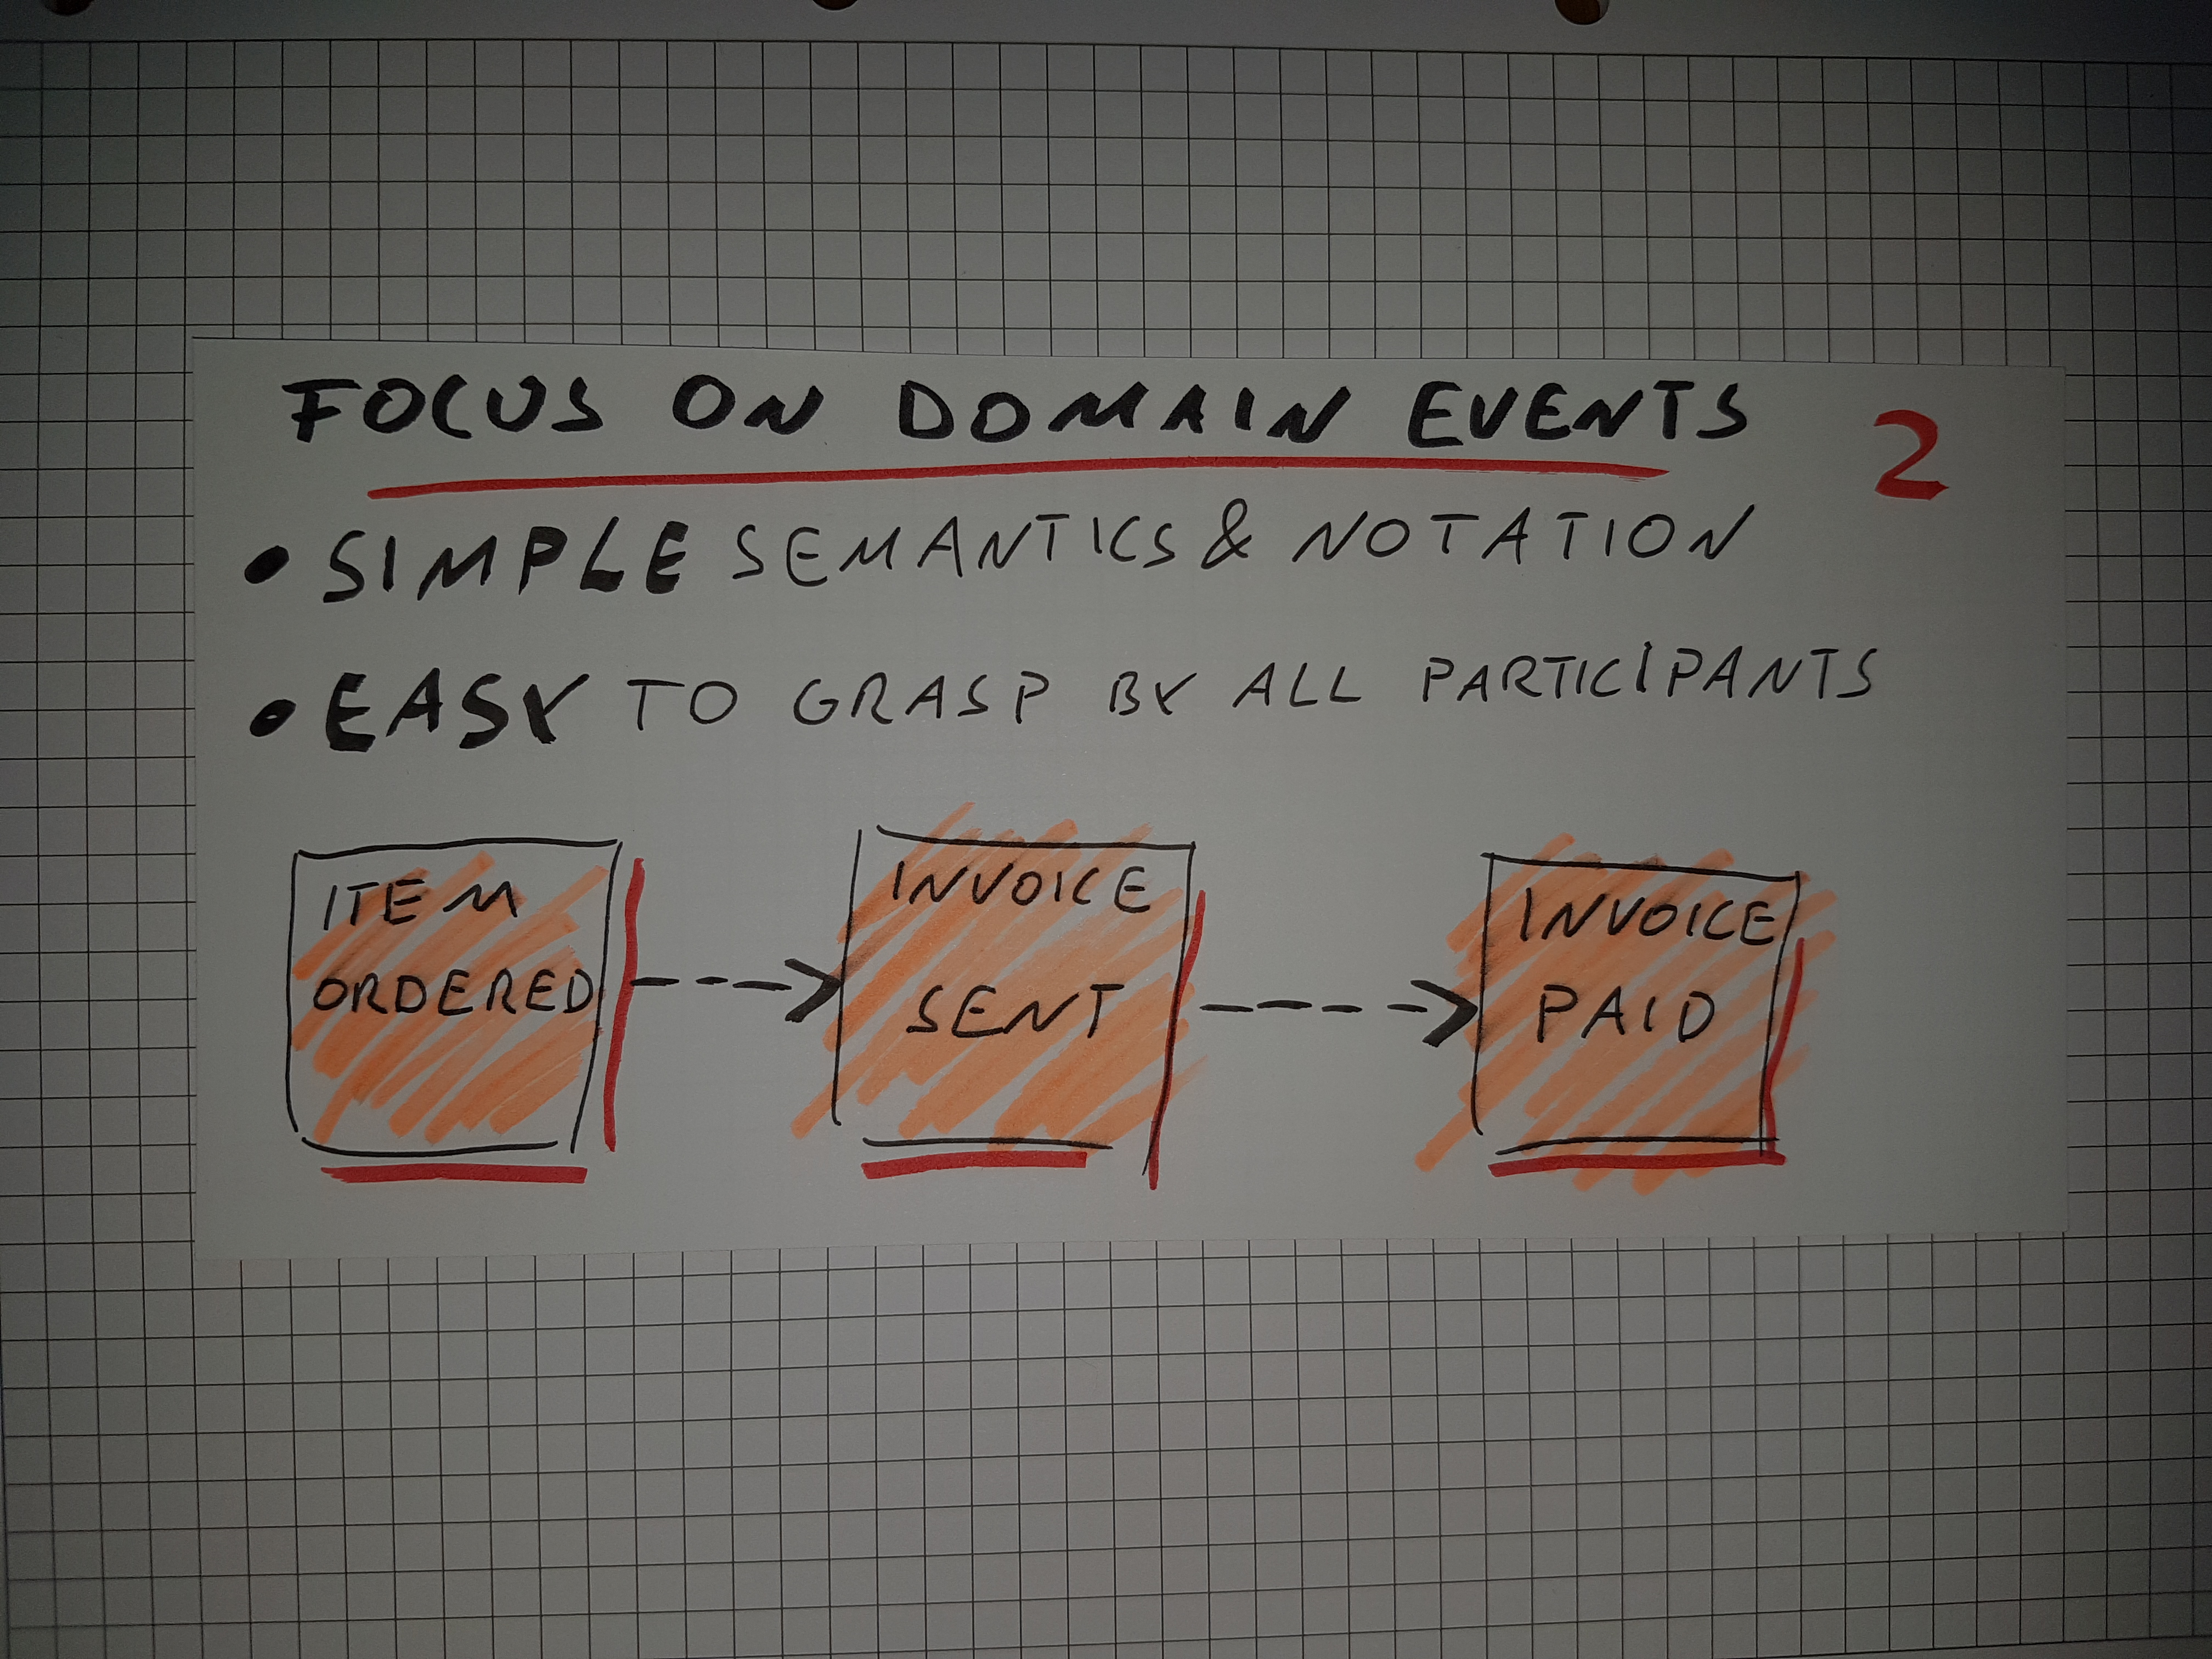 FOCUS ON DOMAIN EVENTS 2
• SIMPLE SEMANTICS & NOTATION
• EASY TO GRASP BY ALL PARTICIPANTS
ITEM
ORDERED
INVOICE
SENT
INVOICE
PAID